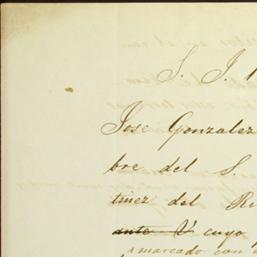 S. J.
José Gonzalez
bre del S.
tinez del Ri
ante V cuyo
marcado con